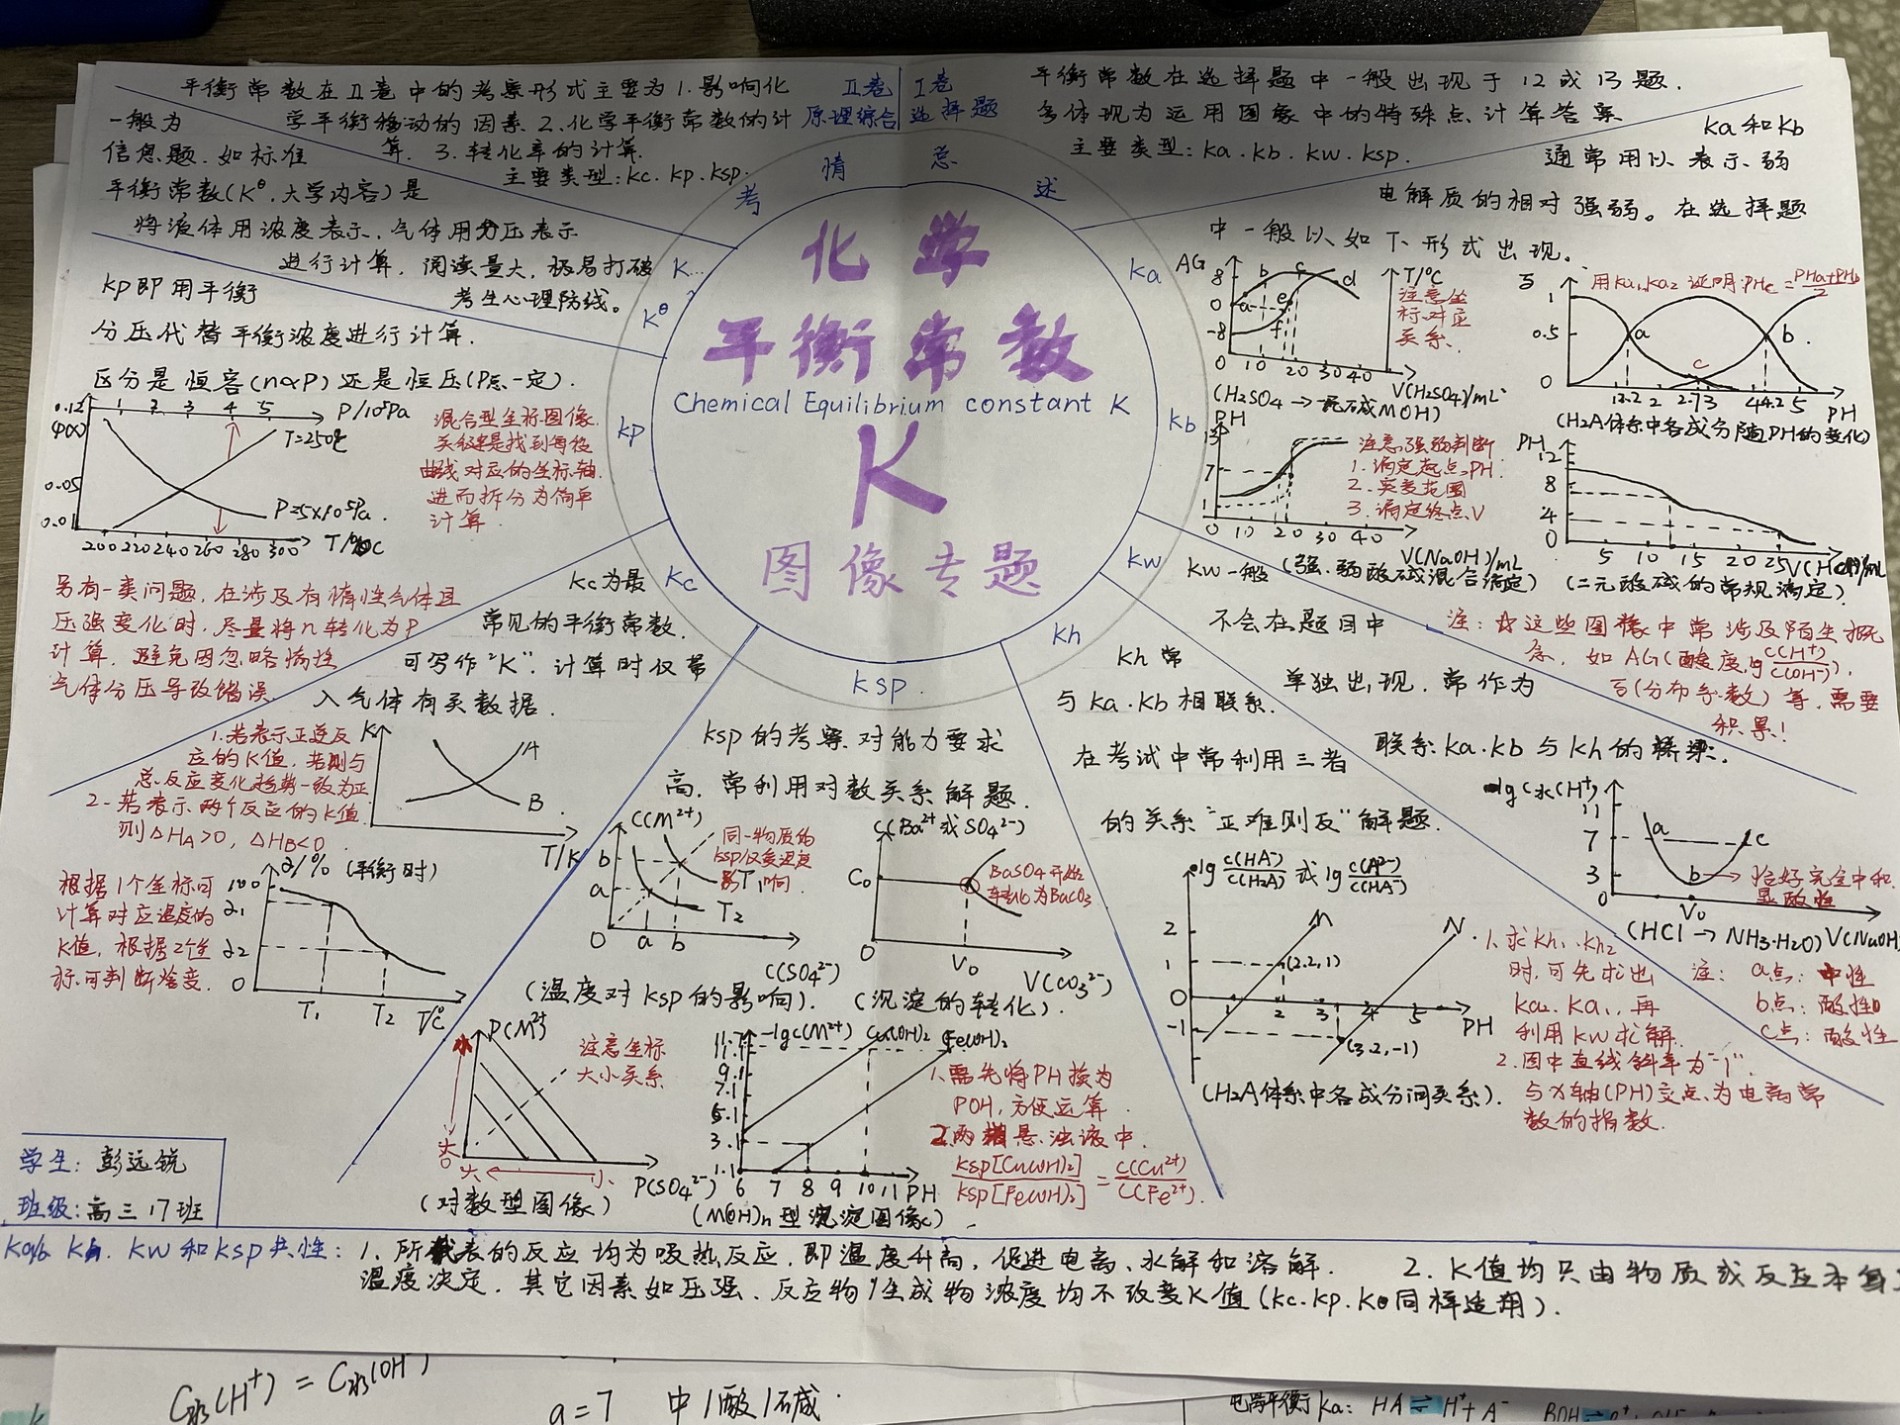 平衡常数在Ⅱ卷中的考察形式主要为1.影响化
学平衡移动的因素 2.化学平衡常数的计
算. 3.转化率的计算.
主要类型:Kc.Kp.Ksp.
Ⅱ卷
原理综合
Ⅰ卷
选择题
平衡常数在选择题中一般出现于12或13题.
多体现为运用图象中的特殊点计算答案
主要类型:Ka.Kb.Kw.Ksp.
考情总述
化学
平衡常数
Chemical Equilibrium constant K
K
图像专题
K...
Kθ
Kp
Kc
Ksp.
Kh
Kw
Kb
Ka
一般为
信息题.如标准
平衡常数(Kθ.大学内容)是
将液体用浓度表示.气体用分压表示
进行计算.阅读量大.极易打破
考生心理防线。
Kp即用平衡
分压代替平衡浓度进行计算.
区分是恒容(n∝P)还是恒压(P总一定).
0.12
φ(X)
0.05
0.01
1 2 3 4 5
P/10⁵Pa
T=250℃
P=5×10⁵Pa.
200 220 240 260 280 300 T/℃
混合型坐标图像.
关键是找到每段
曲线对应的坐标轴.
进而拆分为简单
计算.
另有一类问题.在涉及有惰性气体且
压强变化时.尽量将n转化为P
计算.避免因忽略惰性
气体分压导致错误.
Kc为最
常见的平衡常数.
可写作"K".计算时仅带
入气体有关数据.
1.若表示正逆反
应的K值.若则与
总反应变化趋势一致为正
2.若表示两个反应的K值.
则△HA>0,△HB<0.
K
A
B
T/K
根据1个坐标可
计算对应温度的
K值,根据2个坐
标.可判断焓变.
α/% (平衡时)
100
α1
α2
0
T1 T2 T/℃
Ksp的考察.对能力要求
高.常利用对数关系解题.
C(M²⁺)
b
a
0 a b
T1
T2
C(SO4²⁻)
同一物质的
Ksp仅受温度
影响.
(温度对Ksp的影响).
C(Ba²⁺或SO4²⁻)
C0
0 V0
V(CO3²⁻)
BaSO4开始
转化为BaCO3
(沉淀的转化).
P(M²⁺)
大
大 小
P(SO4²⁻)
注意坐标
大小关系
(对数型图像)
-lgc(M²⁺) Cu(OH)2 Fe(OH)2
11.7
11.1
9.1
7.1
5.1
3.1
1.1
6 7 8 9 10 11 PH
(M(OH)n型沉淀图像)
1.需先将PH换为
POH,方便运算.
2.两悬浊液中.
Ksp[Cu(OH)2]/Ksp[Fe(OH)2]=C(Cu²⁺)/C(Fe²⁺).
Kh常
与Ka.Kb相联系.
在考试中常利用三者
的关系"正难则反"解题.
lg c(HA⁻)/c(H2A) 或 lg c(A²⁻)/c(HA⁻)
M
N
2
1
0
-1
(2.2,1)
(3.2,-1)
1 2 3 4 5 PH
(H2A体系中各成分间关系).
1.求Kh1.Kh2
时,可先求出
Ka2.Ka1,再
利用Kw求解.
2.图中直线斜率为"-1".
与X轴(PH)交点为电离常
数的指数.
Kw一般
不会在题目中
单独出现.常作为
联系Ka.Kb与Kh的桥梁.
-lgC水(H⁺)
11
7
3
0
a
b
c
V0
恰好完全中和
显酸性
(HCl→NH3·H2O) V(NaOH)
注: a点:中性
b点:酸性
c点:酸性
Ka和Kb
通常用以表示弱
电解质的相对强弱。在选择题
中一般以如下形式出现.
AG
8
0
-8
0 10 20 30 40
a b c d e f
T/℃
V(H2SO4)/mL
注意坐
标对应
关系.
(H2SO4→一元碱MOH)
δ
1
0.5
0
用Ka1.Ka2证明:PHc=(PHa+PHb)/2
a
b
c
1 1.2 2 2.7 3 4 4.2 5 PH
(H2A体系中各成分随PH的变化)
PH
13
7
1
0 10 20 30 40
V(NaOH)/mL
注意强弱判断
1.滴定起点PH
2.突变范围
3.滴定终点V
(强.弱酸碱混合滴定)
PH
12
8
4
0
5 10 15 20 25 V(HCl)/mL
(二元酸碱的常规滴定).
注:☆这些图像中常涉及陌生概
念.如AG(酸度,lg c(H⁺)/c(OH⁻)),
δ(分布系数)等,需要
积累!
学生:彭远锐
班级:高三17班
Ka. Kb. Kh. Kw和Ksp共性: 1.所代表的反应均为吸热反应.即温度升高,促进电离、水解和溶解. 2.K值均只由物质或反应本身
温度决定.其它因素如压强、反应物/生成物浓度均不改变K值(Kc.Kp.Kθ同样适用).
C水(H⁺)=C水(OH⁻)
a=7 中/酸/碱.
电离平衡Ka: HA⇌H⁺+A⁻